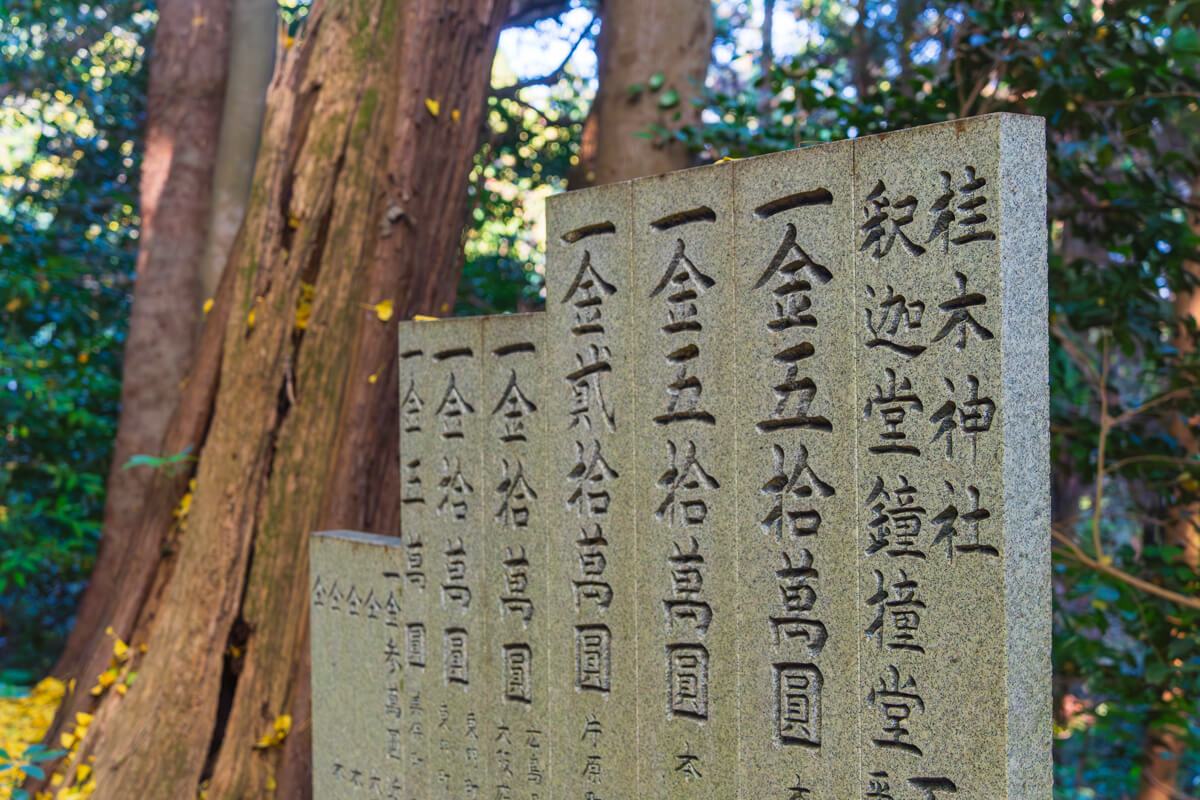 桂木神社
釈迦堂鐘撞堂
一金五拾萬圓
一金五拾萬圓 本
一金貳拾萬圓 片原
一金拾萬圓
一金拾萬圓
一金三萬圓
一金参萬圓
仝
仝
仝
仝